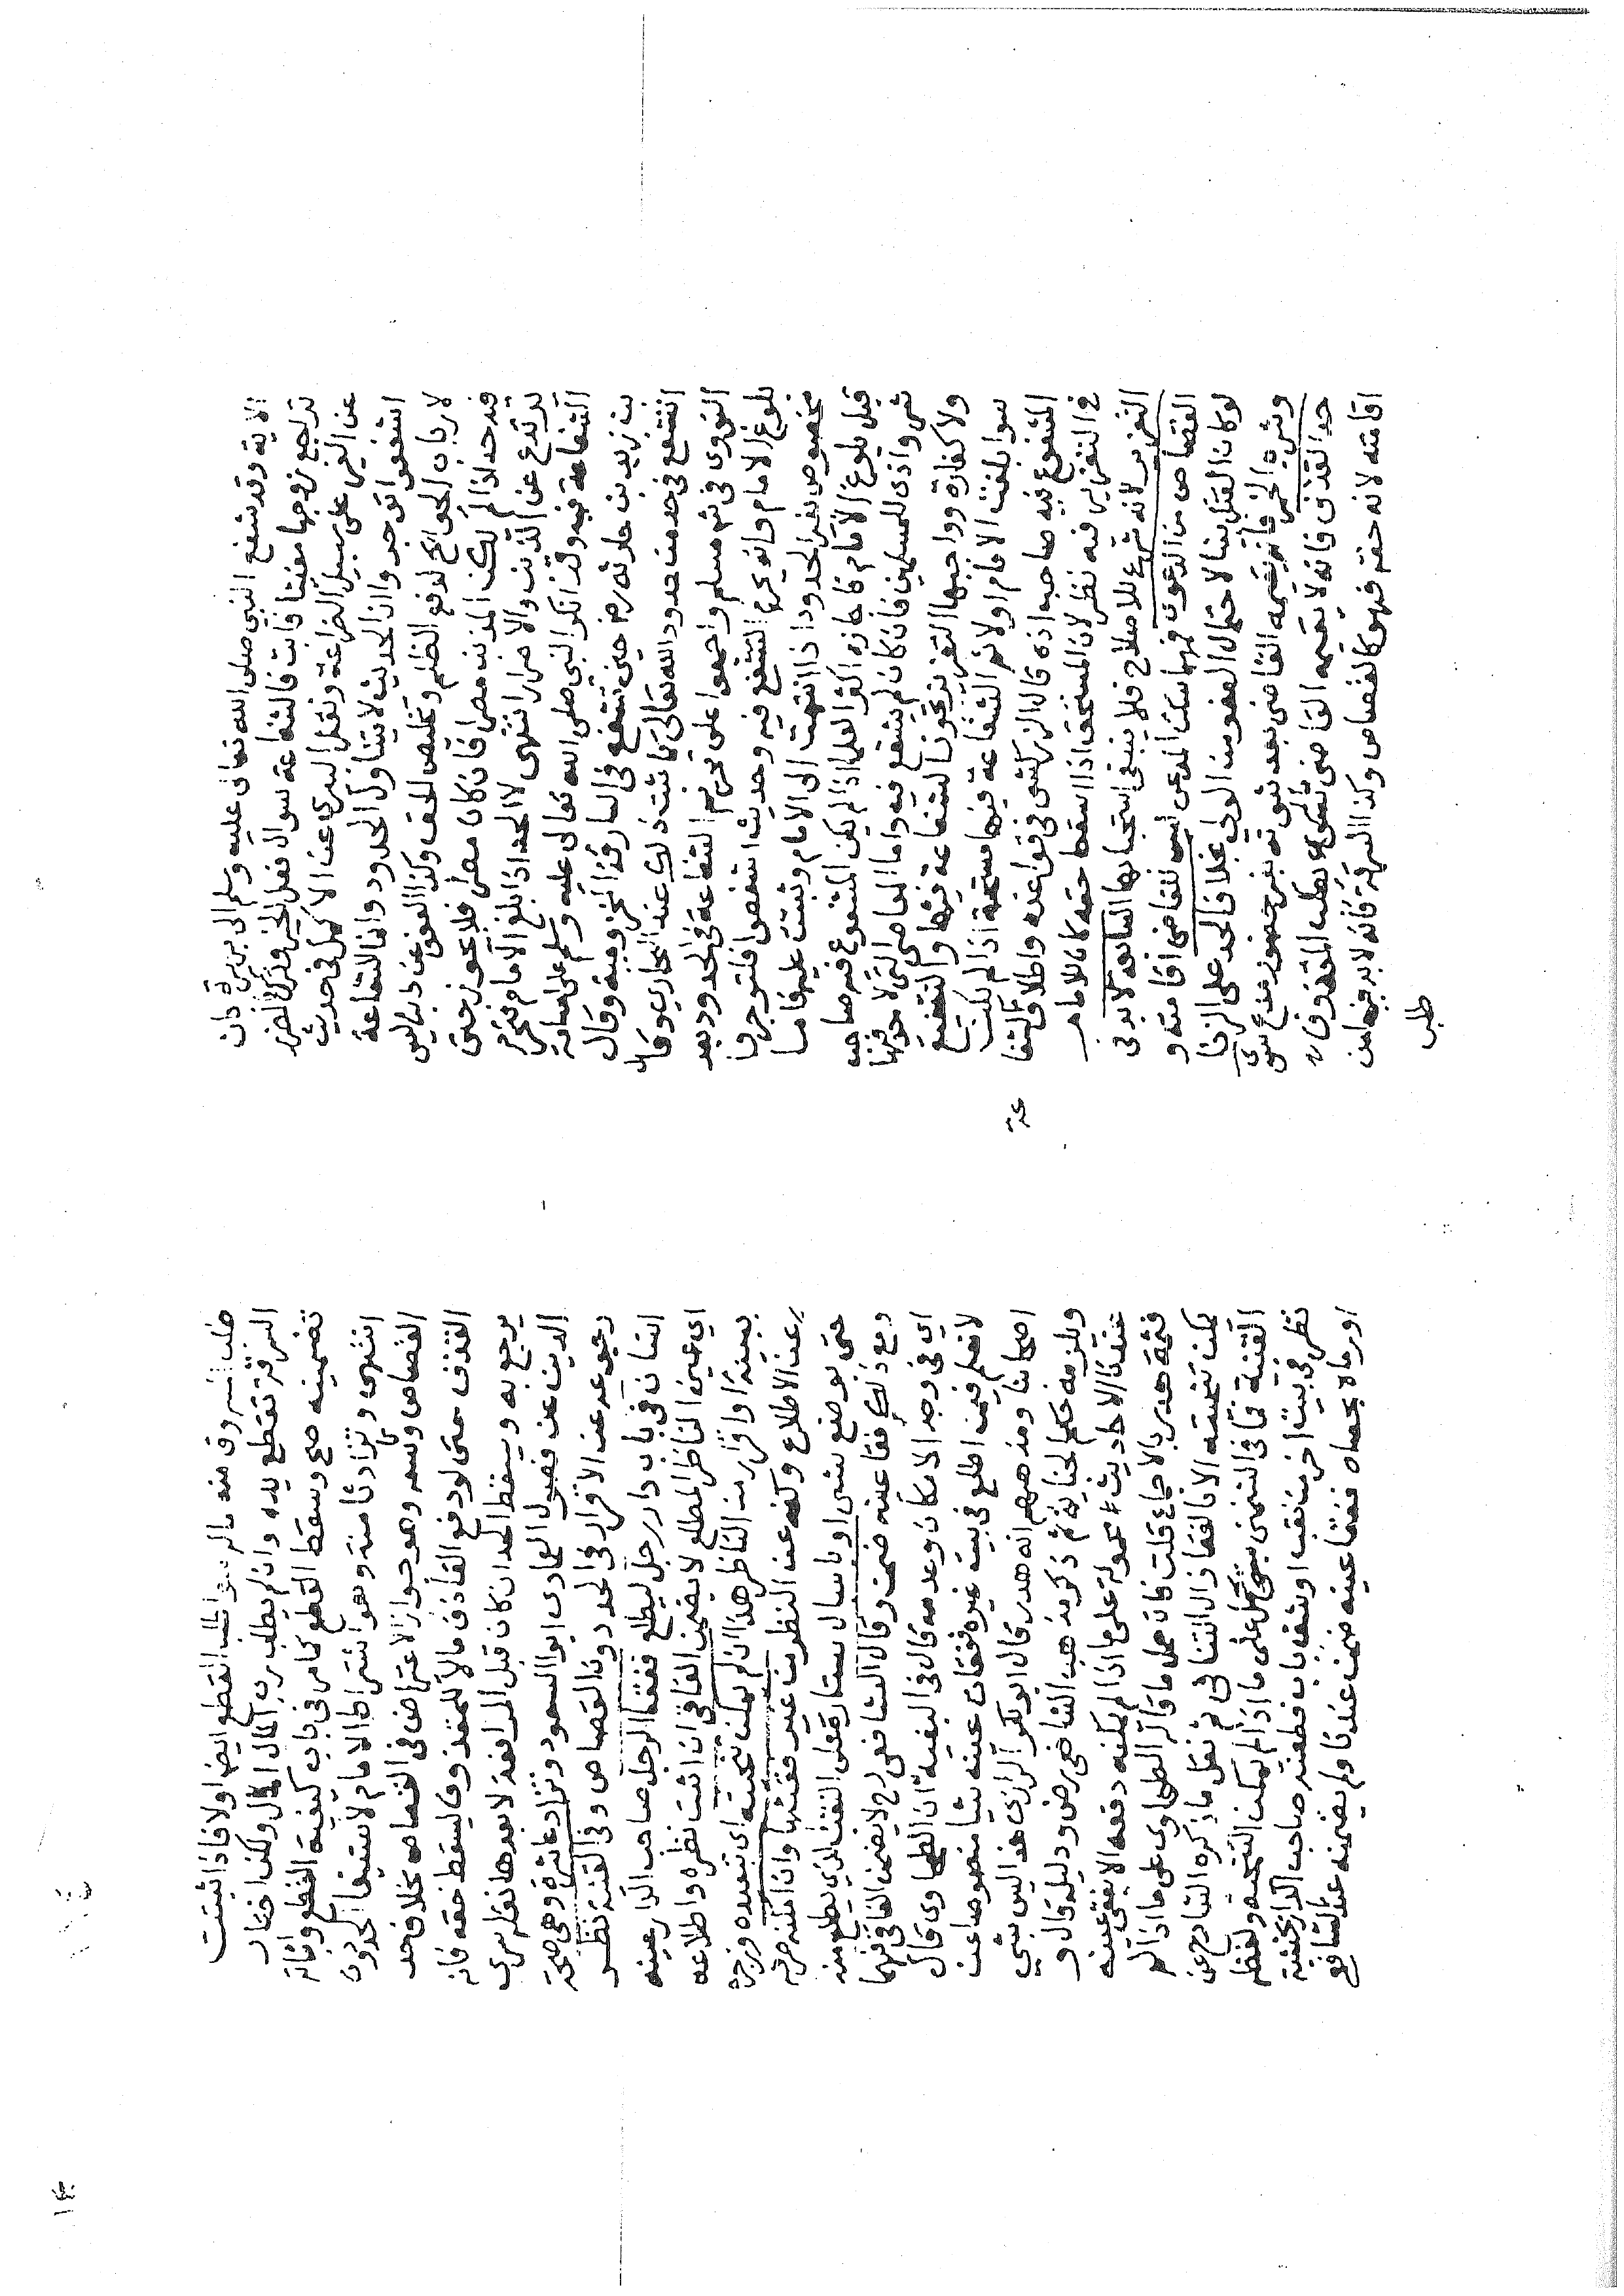 الاية وقد شفع النبي صلى الله تعالى عليه وسلم الى بريرة فى ان
تراجع زوجها مغيثا فابت فالشفاعة سوال فعل الخير وترك الضرر
عن الغير على سبيل الضراعة ونقل البيرى عن الاكمل فى حديث
اشفعوا تؤجروا ان الحديث لا يتناول الحدود وانما الشفاعة
لارباب الحوائج لدفع الظلم وتخليص الحق وكذا العفو عن ذنب ليس
فيه حد اذا لم يكن المذنب مصرا فان كان مصرا فلا يجوز حتى
يرتدع عن الذنب والاصرار انتهى لا الحد اذا بلغ الامام فتحرم
الشفاعة فيه وقد انكر النبي صلى الله تعالى عليه وسلم على اسامة
بن زيد بن حارثه رض حين تشفع فى السارقة المخزومية وقال
اتشفع فى حد من حدود الله تعالى كما ثبت ذلك عند البخارى وقال
النووى فى شرح مسلم واجمعوا على تحريم الشفاعة فى الحدود بعد
بلوغ الامام وانه يحرم التشفع فيه وحديث اشفعوا فلتوجروا
مخصوص بغير الحدود اذا انتهت الى الامام وثبتت عليه فاما
قبل بلوغ الامام فاجازه اكثر العلما اذا لم يكن المشفوع فيه صاحب
شر واذى للمسلمين فان كان لم يشفع فيه واما المعاصى التى لا حد فيها
ولا كفارة وواجبها التعزير فتجوز الشفاعة فيها والتشفيع
سوا بلغت الامام او لا ثم الشفاعة فيها مستحبة اذا لم يكن
المشفوع فيه صاحب اذى قال الزركشى فى قواعده واطلاق الشفا
عة
فى التعزير فيه نظر لان المستحق اذا اسقط حقه كان للامام
التعزير لانه شرع للاصلاح فلا ينبغى استحبابها السابعة لا بد فى
القصاص من الدعوى فمهما سكت المدعى ليس للقاضى اقامته و
لو كان القتل بينا لاحتمال العفو من الولي بخلاف الحد على الزنا
وشرب الخمر فانه يقيمه القاضى بعد ثبوته بغير حضور مدع سوى
حد القذف فانه لا يقيمه القاضى بدعوى بطلب المقذوف
اقامته لانه حقه فهو كالقصاص وكذا السرقة فانه لا بد فيها من
طلب
طلب المسروق منه مالم يطالب القطع ايضا اولا فاذا ثبتت
السرقة تقطع يده وان لم يطلب رب المال المال ولكن اختار
تضمينه صح وسقط القطع كما مر فى باب كيفية القطع واثباته
انتهى وتزاد ثامنة وهو اشتراط الامام لاستيفا الحدود
القصاص وتسعة وهو جواز الاعتراض فى القصاص بخلاف حد
القذف حتى لو دفع القاذف مالا للمقذوف ليسقط حقه فانه
يرجع به ويسقط الحد ان كان قبل المرافعة لا بعدها نقله سرى
الدين عن فصول العمادى ابو السعود وتزاد عاشرة وهى صحة
رجوعه عن الاقرار فى الحد دون القصاص وفى القنية نظر
انسان فى باب دار رجل ليطلع ففقأ الرجل صاحب الدار عينه
اي عين الناظر المطلع لا يضمن الفاقئ ان اثبت نظره واطلاعه
ببينة او اقرار من الناظر هذا ان لم يمكن تنحيته اى تبعيده وزجره
عن الاطلاع وكفه عن النظر من غير فقئها وان امكنه صرفه
حتى بوضع شى او باسبال ستارة على الثقب الذى يطلع منه
ومع ذلك فقأ عينه ضمن وقال الشافعى رح لا يضمن الفاقى فيهما
اي فى وجد الامكان وعدمه قال فى البغية ان الطحاوى قال
لا نعلم فيمن اطلع فى بيت غيره ففقات عينه شيا منصوصا عن
اصحابنا ومذهبهم انه هدر قال ابو بكر الرازى هذا ليس بشي
ويلزمه حكم الجناية ثم ذكر مذهب الشافعى رض ودليله قال و
عندنا الاحاديث محمولة على ما اذا لم يمكنه دفعه الا بفقئ عينه
فثمة هدر بالاجماع قلت فان حمل ما قاله الطحاوى على ما اذا لم
يمكن تنحيته الا بالفقا زال التنافى ثم نقل ما ذكره الشارح عن
القنية فما فى الشمنى يحمل على ما اذا لم يمكن التنحيته ولفظه
نظر فى بيت اخر من ثقب او شق باب فطعنه صاحب الدار بخشبة
او رماه بحصاة ففقأ عينه ضمن عندنا ولم يضمنه عند الشافعى